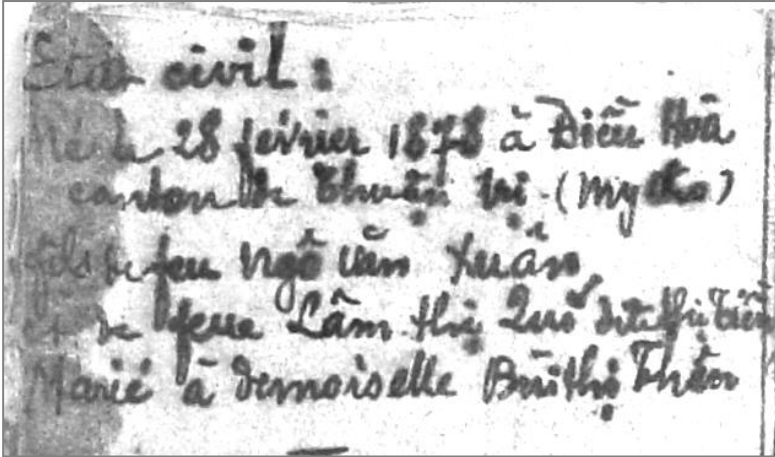 Etat civil :
Né le 28 février 1878 à Điều Hoà
canton de Thuận Trị (Mytho)
fils de feu Ngô Văn Xuân
et de feue Lâm thị Quơ dite thị Tiên
Marié à demoiselle Bùi thị Thân